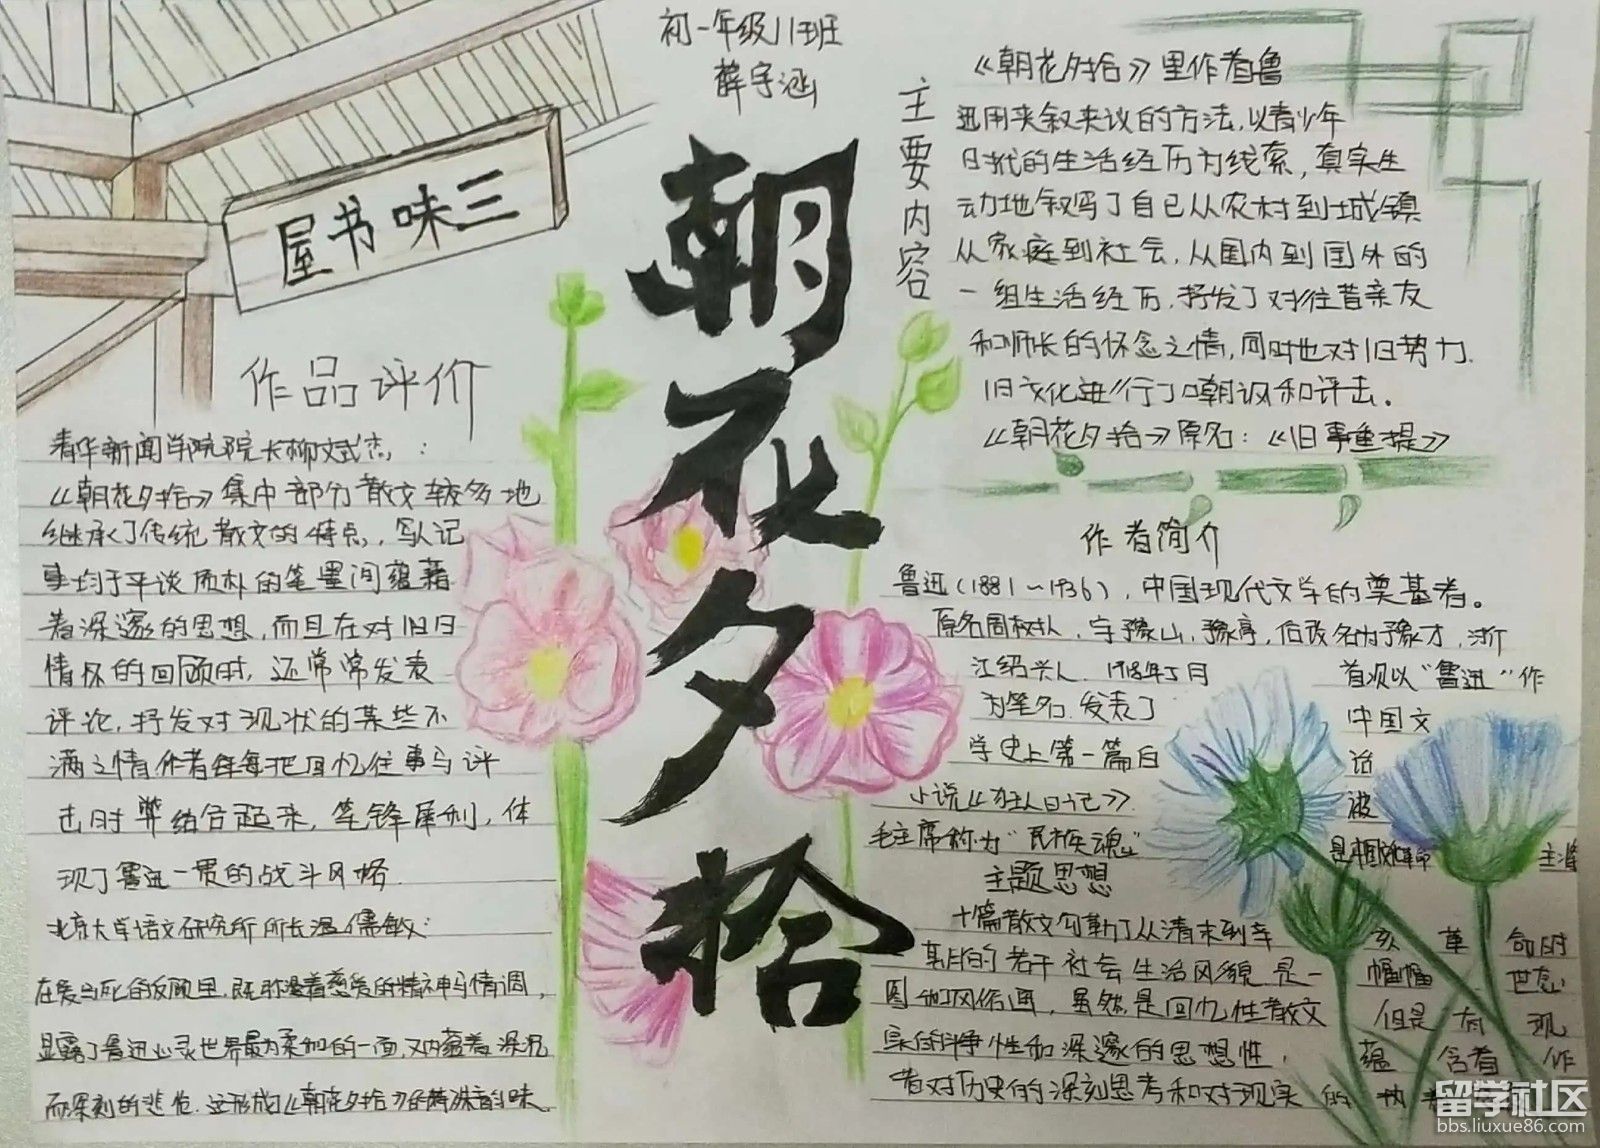 初一年级11班
薛宇涵
三味书屋
朝花夕拾
主要内容
《朝花夕拾》里作者鲁
迅用夹叙夹议的方法,以青少年
时代的生活经历为线索,真实生
动地叙写了自己从农村到城镇
从家庭到社会,从国内到国外的
一组生活经历,抒发了对往昔亲友
和师长的怀念之情,同时也对旧势力.
旧文化进行了嘲讽和评击。
《朝花夕拾》原名:《旧事重提》
作品评价
清华新闻学院院长柳斌杰:
《朝花夕拾》集中部分散文较多地
继承了传统散文的特点,写人记
事均于平谈质朴的笔墨间蕴藉
着深邃的思想,而且在对旧日
情怀的回顾时,还常常发表
评论,抒发对现状的某些不
满之情作者每每把回忆往事与评
击时弊结合起来,笔锋犀利,体
现了鲁迅一贯的战斗风格.
北京大学语文研究所所长温儒敏:
在爱与死的反顾里,既弥漫着慈爱的精神与情调,
显露了鲁迅心灵世界最为柔和的一面,又内蕴着深沉
而深刻的悲怆.这形成《朝花夕拾》的味
作者简介
鲁迅(1881~1936),中国现代文学的奠基者。
原名周树人,字豫山,豫亭,后改名为豫才,浙
江绍兴人.1918年5月首次以“鲁迅”作
为笔名.发表了中国文
学史上第一篇白话
小说《狂人日记》.被
毛主席称为“民族魂”
主题思想
十篇散文勾勒了从清末到辛亥革命时
期的若干社会生活风貌是一幅幅世态
图和风俗画,虽然是回忆性散文但是有现
实的战争性和深邃的思想性,蕴含着作
者对历史的深刻思考和对现实的
留学社区
bbs.liuxue86.com